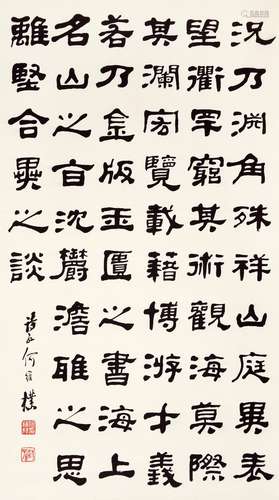 況乃淵角殊祥山庭異表
望衢罕窺其術觀海莫際
其瀾宏覽載籍博游才義
若乃金版玉匱之書海上
名山之旨沈鬱澹雅之思
離堅合異之談
詩孫何維樸